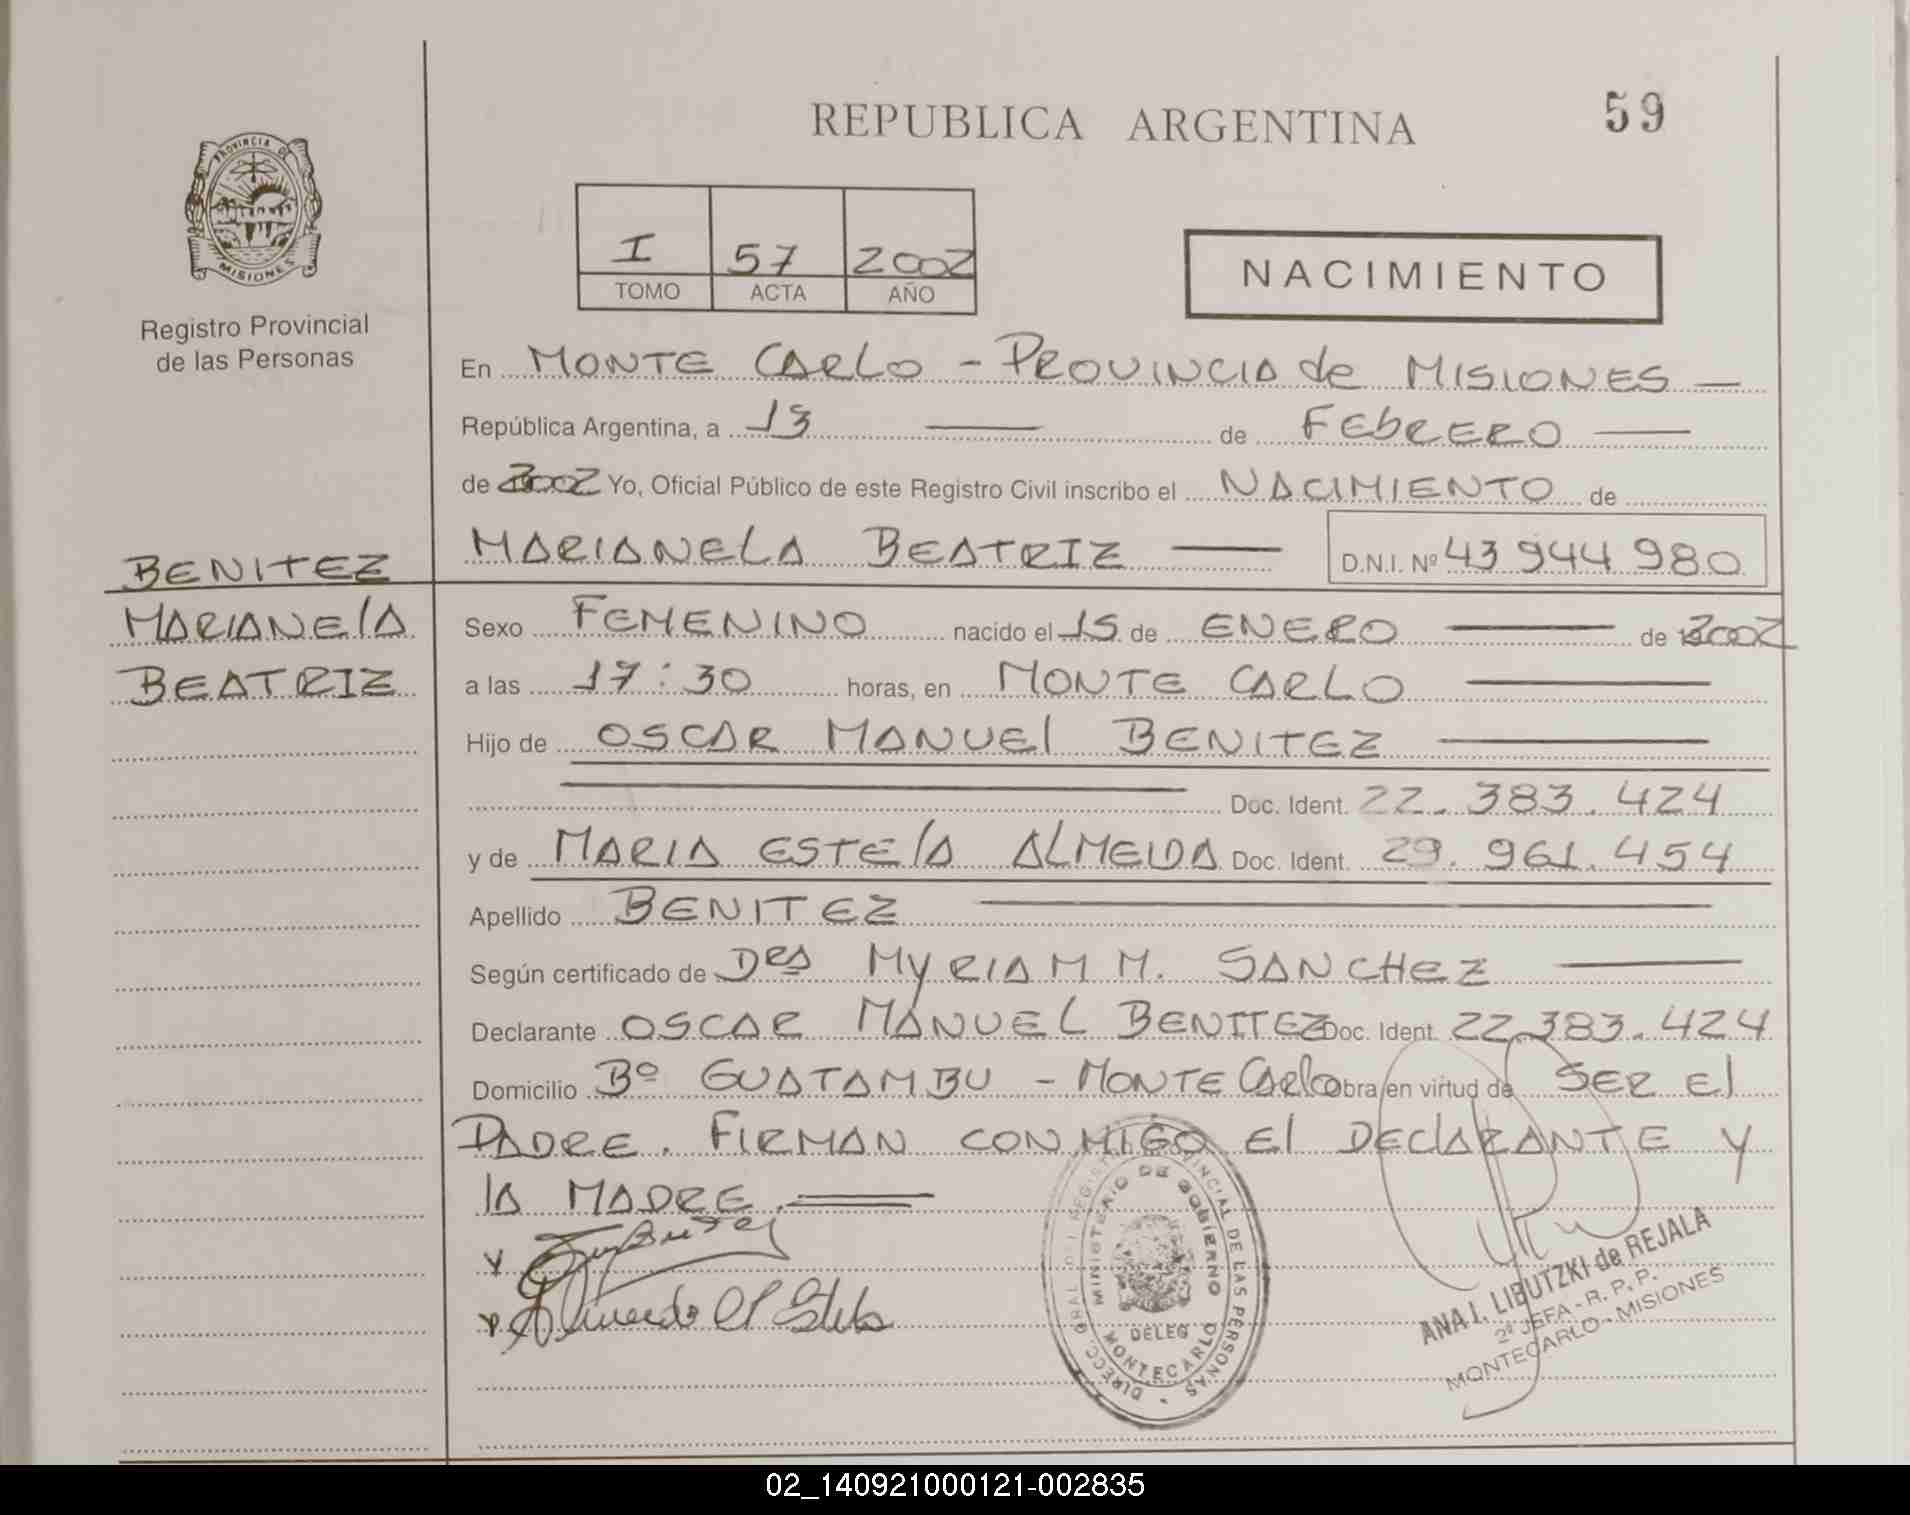 REPUBLICA ARGENTINA
59
PROVINCIA DE
MISIONES
Registro Provincial
de las Personas
I 57 2002
TOMO ACTA AÑO
NACIMIENTO
En MONTE CARLO - PROVINCIA de MISIONES —
República Argentina, a 13 — de FEbRERO —
de 2002 Yo, Oficial Público de este Registro Civil inscribo el NACIMIENTO de
MARIANELA BEATRIZ — D.N.I. Nº 43 944 980
BENITEZ
MARIANElA
BEATRIZ
Sexo FEMENINO nacido el 15 de ENERO — de 2002
a las 17:30 horas, en MONTE CARLO —
Hijo de OSCAR MANUEl BENITEZ —
— Doc. Ident. 22.383.424
y de MARIA ESTElA ALMEIDA Doc. Ident. 29.961.454
Apellido BENITEZ —
Según certificado de DRA MYRIAM M. SANCHEZ —
Declarante OSCAR MANUEL BENITEZ Doc. Ident. 22.383.424
Domicilio Bº GUATAMBU - MONTE CARlo Obra en virtud de SER El
PADRE. FIRMAN CONMIGO El DEClARANTE Y
lA MADRE. —
DIRECC. GRAL. DEL REGISTRO PROVINCIAL DE LAS PERSONAS
MINISTERIO DE GOBIERNO
DELEG
MONTECARLO
ANA I. LIBUTZKI de REJALA
2ª JEFA - R. P. P.
MONTECARLO - MISIONES
02_140921000121-002835